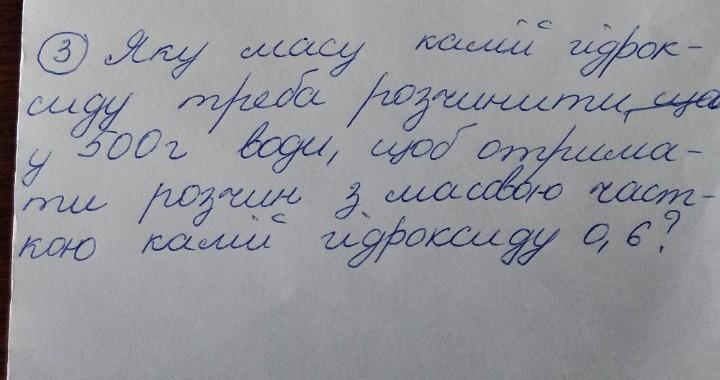 3 Яку масу калій гідрок-
сиду треба розчинити, що
у 500г води, щоб отрима-
ти розчин з масовою част-
кою калій гідроксиду 0,6?